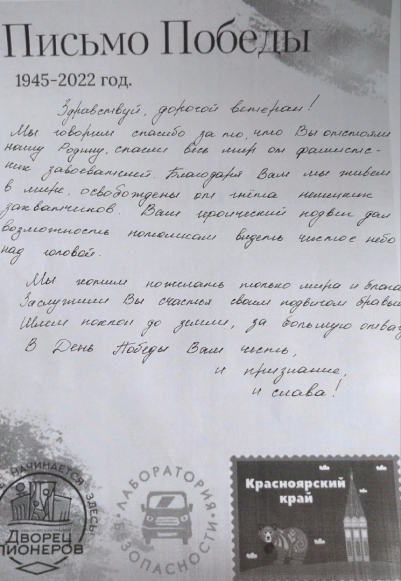 Письмо Победы
1945-2022 год.
Здравствуй, дорогой ветеран!
Мы говорим спасибо за то, что Вы отстояли
нашу Родину, спасли весь мир от фашистс-
ких завоевателей. Благодаря Вам мы живём
в мире, освобождены от гнёта немецких
захватчиков. Ваш героический подвиг дал
возможность потомкам видеть чистое небо
над головой.
Мы хотим пожелать только мира и блага
Заслужили Вы счастья своим подвигом бравым
Шлем поклон до земли, за большую отвагу
В День Победы Вам честь,
и признание,
и слава!
НАЧИНАЕТСЯ ЗДЕСЬ
ДВОРЕЦ
ПИОНЕРОВ
ЛАБОРАТОРИЯ
БЕЗОПАСНОСТИ
Красноярский
край